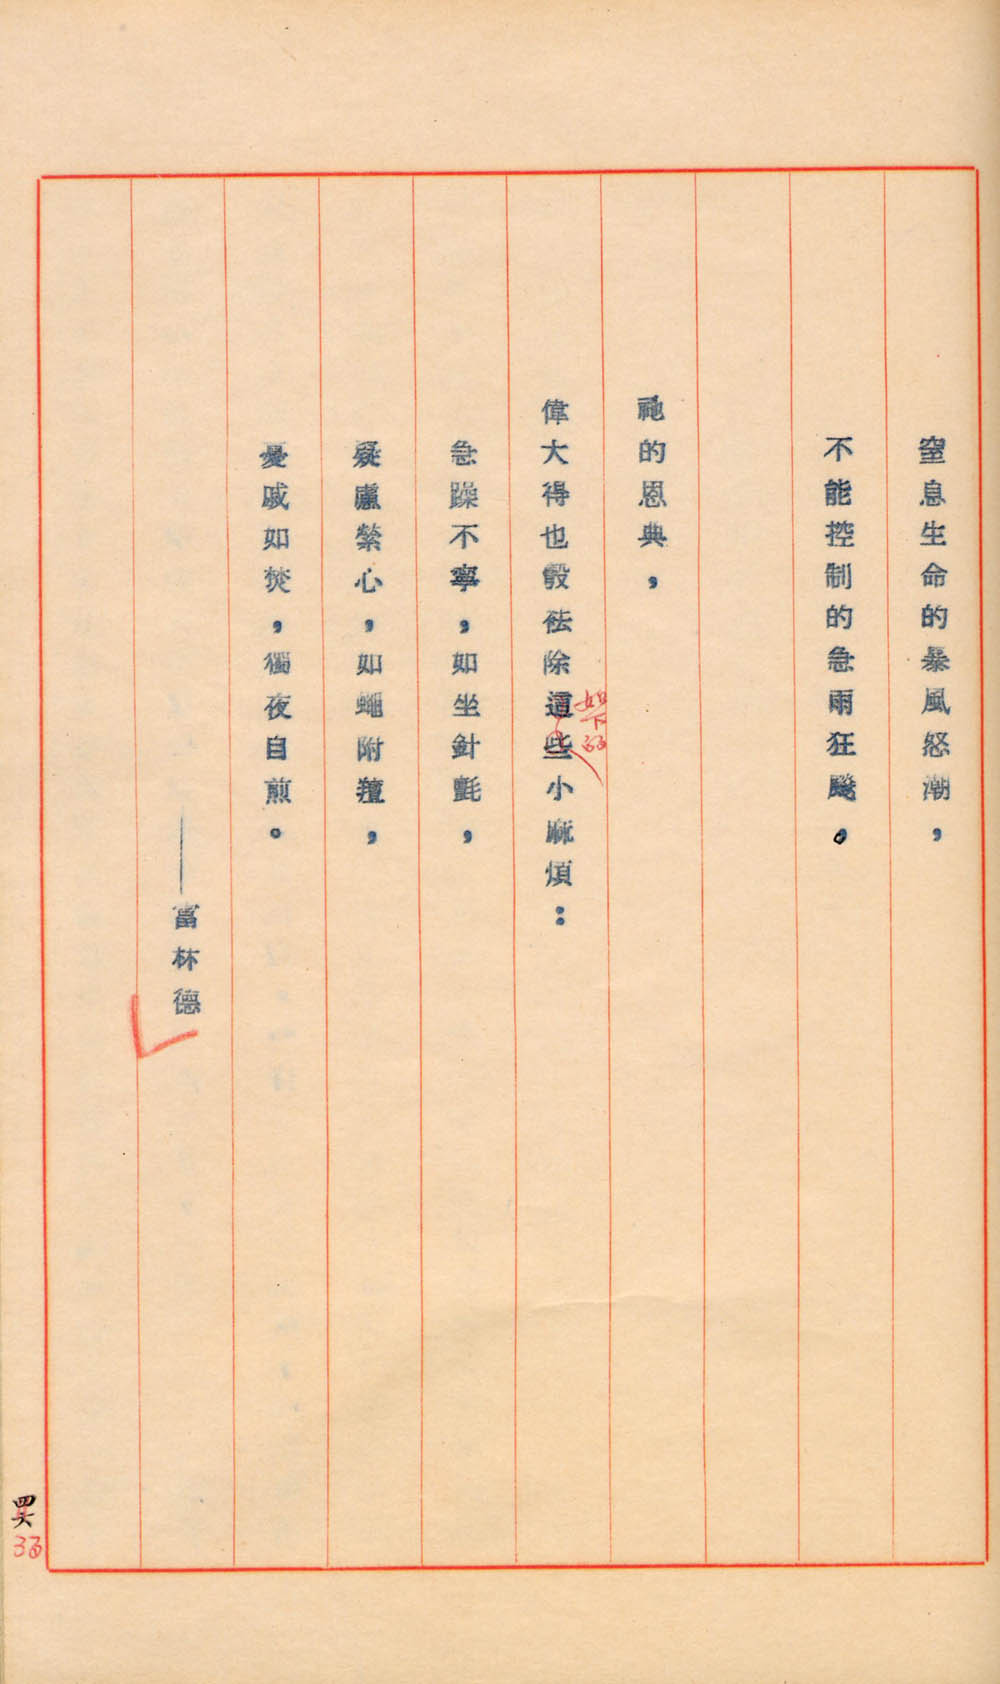 窒息生命的暴風怒潮，
不能控制的急雨狂飈。
祂的恩典，
偉大得也彀袪除這些小麻煩：
如下的
急躁不寧，如坐針氈，
疑慮縈心，如蠅附羶，
憂戚如焚，獨夜自煎。
——富林德
四六